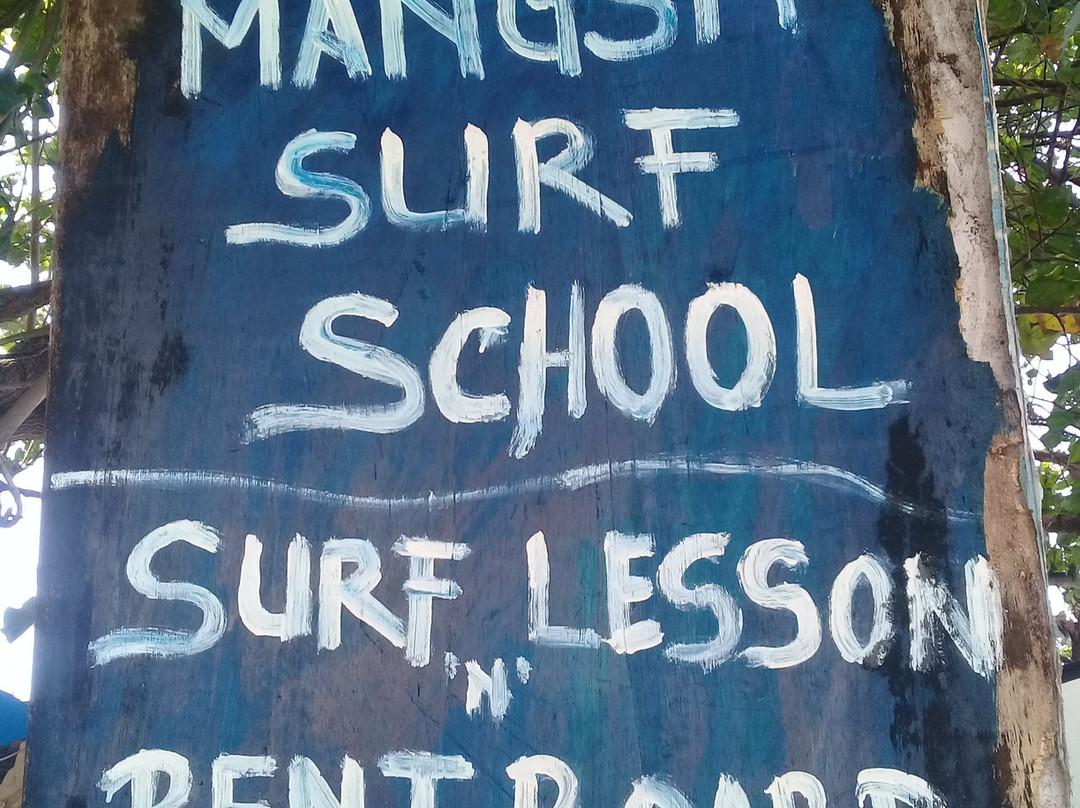 MANGSIT
SURF
SCHOOL
SURF LESSON
'N'
RENT BOARD